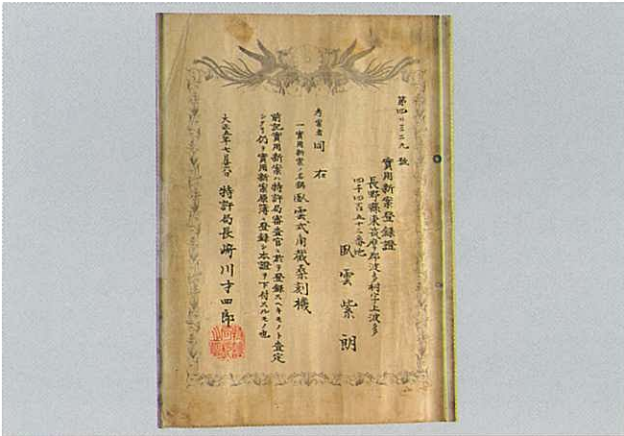 實用新案登錄證
長野縣東筑摩郡波多村字上波多
四千四百五十二番地
臥雲紫朗
考案者 同右
一實用新案ノ名稱 臥雲式角截桑刻機
前記實用新案ハ特許局審査官ニ於テ登錄スヘキモノト査定
シタリ仍テ實用新案原簿ニ登錄シ本證ヲ下付スルモノ也
特許局長 崎川才四郎